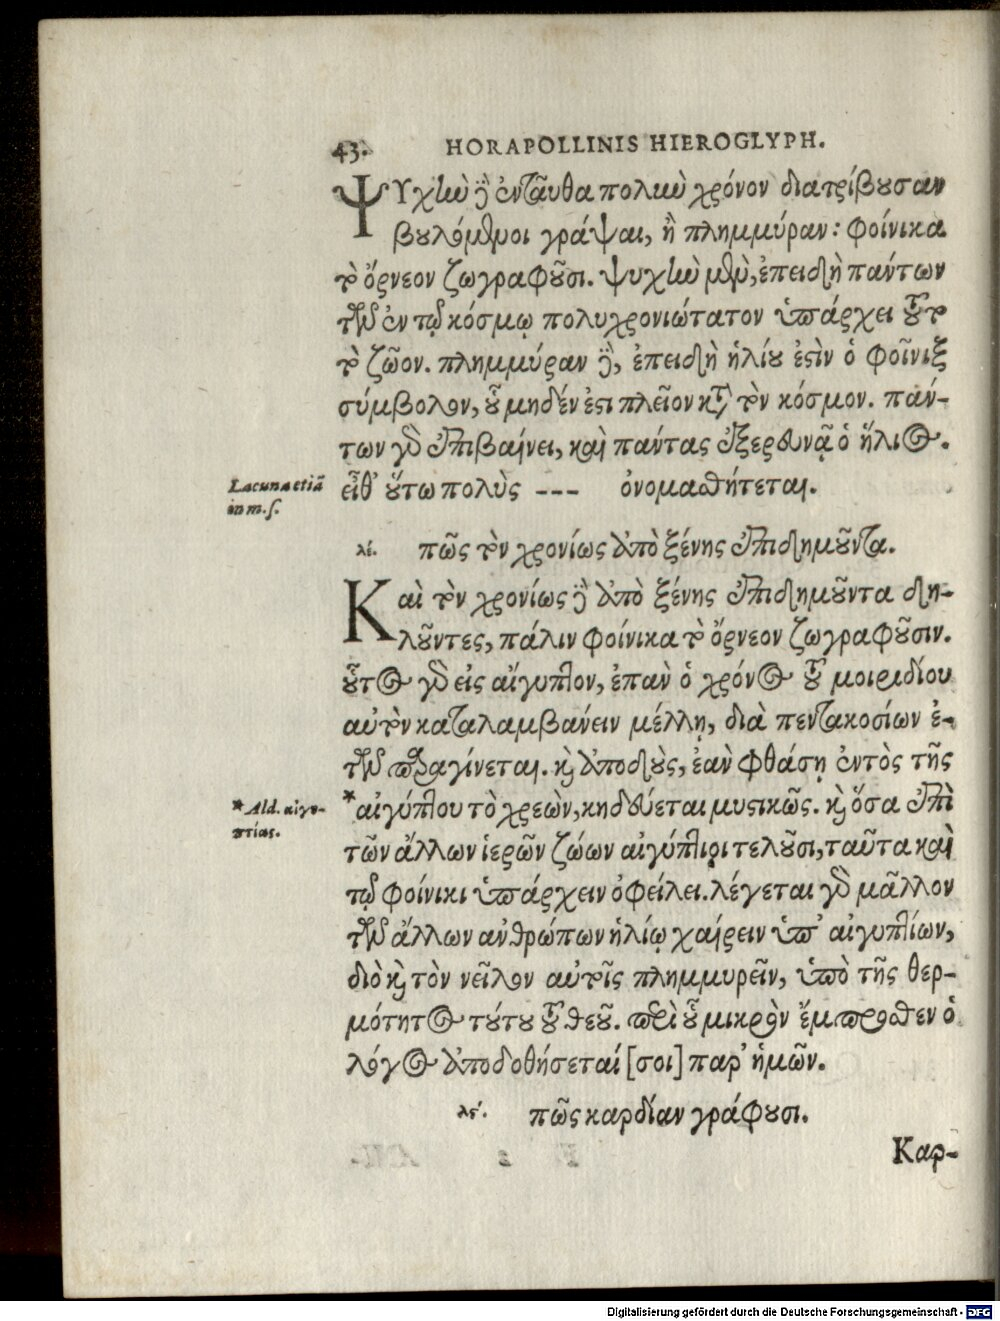 43. HORAPOLLINIS HIEROGLYPH.
ΨΥχὴν δὲ ἐνταῦθα πολιὺ χρόνον διατρίβουσαν
βουλόμενοι γράψαι, ἢ πλημμύραν: φοίνικα
τὸ ὄρνεον ζωγραφοῦσι. ψυχὴν μὲν, ἐπειδὴ πάντων
τῶν ἐν τῷ κόσμῳ πολυχρονιώτατον ὑπάρχει τοῦτο
τὸ ζῶον. πλημμύραν δὲ, ἐπειδὴ ἡλίου ἐστὶν ὁ φοῖνιξ
σύμβολον, οὗ μηδέν ἐστι πλεῖον κατὰ τὸν κόσμον. πάν-
των γὰρ ἐπιβαίνει, καὶ πάντας ἐξερευνᾷ ὁ ἥλιος.
εἶθ' οὕτω πολὺς --- ὀνομασθήτεται.
Lacuna etiā
in m.s.
λέ. πῶς τὸν χρονίως ἀπὸ ξένης ἐπιδημοῦντα.
Καὶ τὸν χρονίως δὲ ἀπὸ ξένης ἐπιδημοῦντα δη-
λοῦντες, πάλιν φοίνικα τὸ ὄρνεον ζωγραφοῦσιν.
οὗτος γὰρ εἰς αἴγυπτον, ἐπαν ὁ χρόνος τοῦ μοιριδίου
αὐτὸν καταλαμβάνειν μέλλῃ, διὰ πεντακοσίων ἐ-
τῶν παραγίνεται. καὶ ἀποδοὺς, ἐὰν φθάσῃ ἐντὸς τῆς
*αἰγύπτου τὸ χρεὼν, κηδεύεται μυστικῶς. καὶ ὅσα ἐπὶ
* Ald. αἰγυ-
πτίας.
τῶν ἄλλων ἱερῶν ζώων αἰγύπτιοι τελοῦσι, ταῦτα καὶ
τῷ φοίνικι ὑπάρχειν ὀφείλει. λέγεται γὰρ μᾶλλον
τῶν ἄλλων ανθρώπων ἡλίῳ χαίρειν ὑπ' αἰγυπτίων,
διὸ καὶ τὸν νεῖλον αὐτοῖς πλημμυρεῖν, ὑπὸ τῆς θερ-
μότητος τούτου τοῦ θεοῦ. περὶ οὗ μικρὸν ἔμπροσθεν ὁ
λόγος ἀποδοθήσεταί [σοι] παρ' ἡμῶν.
λϛ'. πῶς καρδίαν γράφουσι.
Καρ-
Digitalisierung gefördert durch die Deutsche Forschungsgemeinschaft - DFG